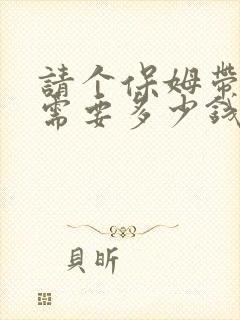 請个保姆帶
需要多少錢
貝昕